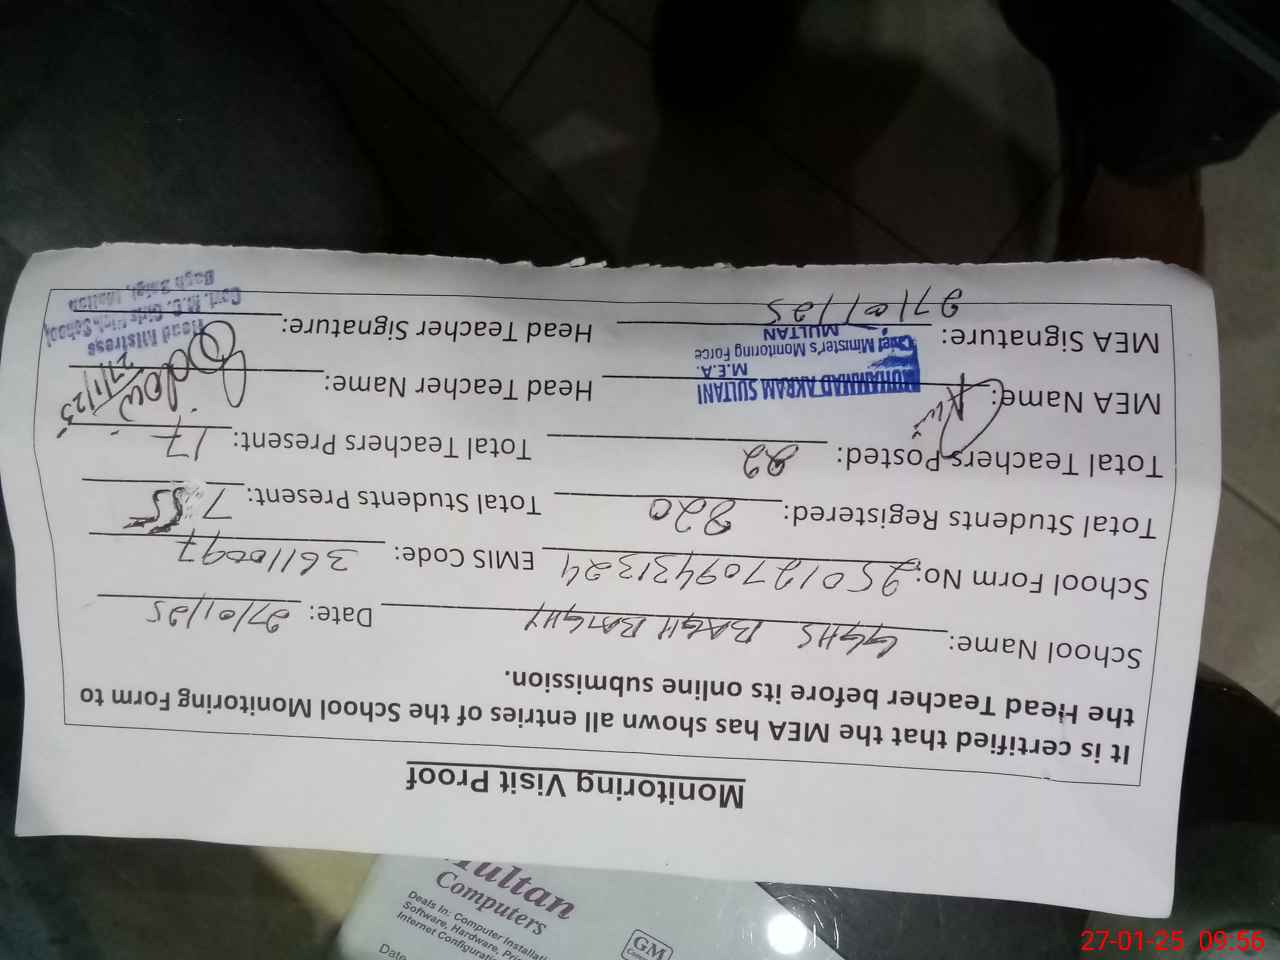 Monitoring Visit Proof
It is certified that the MEA has shown all entries of the School Monitoring Form to
the Head Teacher before its online submission.
School Name: GGHS BAGH BAIGHY Date: 27/01/25
School Form No: 25012709431324 EMIS Code: 36110097
Total Students Registered: 820 Total Students Present: 755
Total Teachers Posted: 22 Total Teachers Present: 17
MEA Name: MUHAMMAD AKRAM SULTANI Head Teacher Name:
M.E.A.
Chief Minister's Monitoring Force
MULTAN
MEA Signature: 27/01/25 Head Teacher Signature:
27/1/25
Head Mistress
Govt. M.C. Girls High School
Bagh Baigi, Multan
Multan
Computers
Deals In: Computer
Software, Hardware,
Internet
Date
GM
27-01-25 09:56